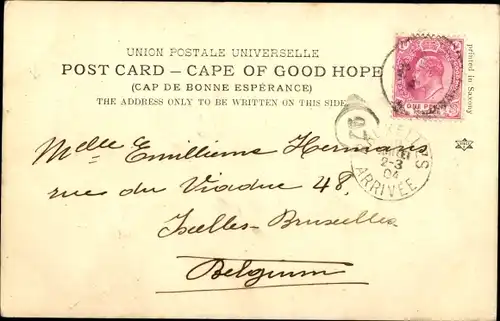 UNION POSTALE UNIVERSELLE
POST CARD – CAPE OF GOOD HOPE
(CAP DE BONNE ESPÉRANCE)
THE ADDRESS ONLY TO BE WRITTEN ON THIS SIDE.
ONE PENNY
printed in Saxony
2-3
04
ARRIVÉE
Melle Emilliene Hermans
rue du Viaduc 48,
Ixelles-Bruxelles
Belgium